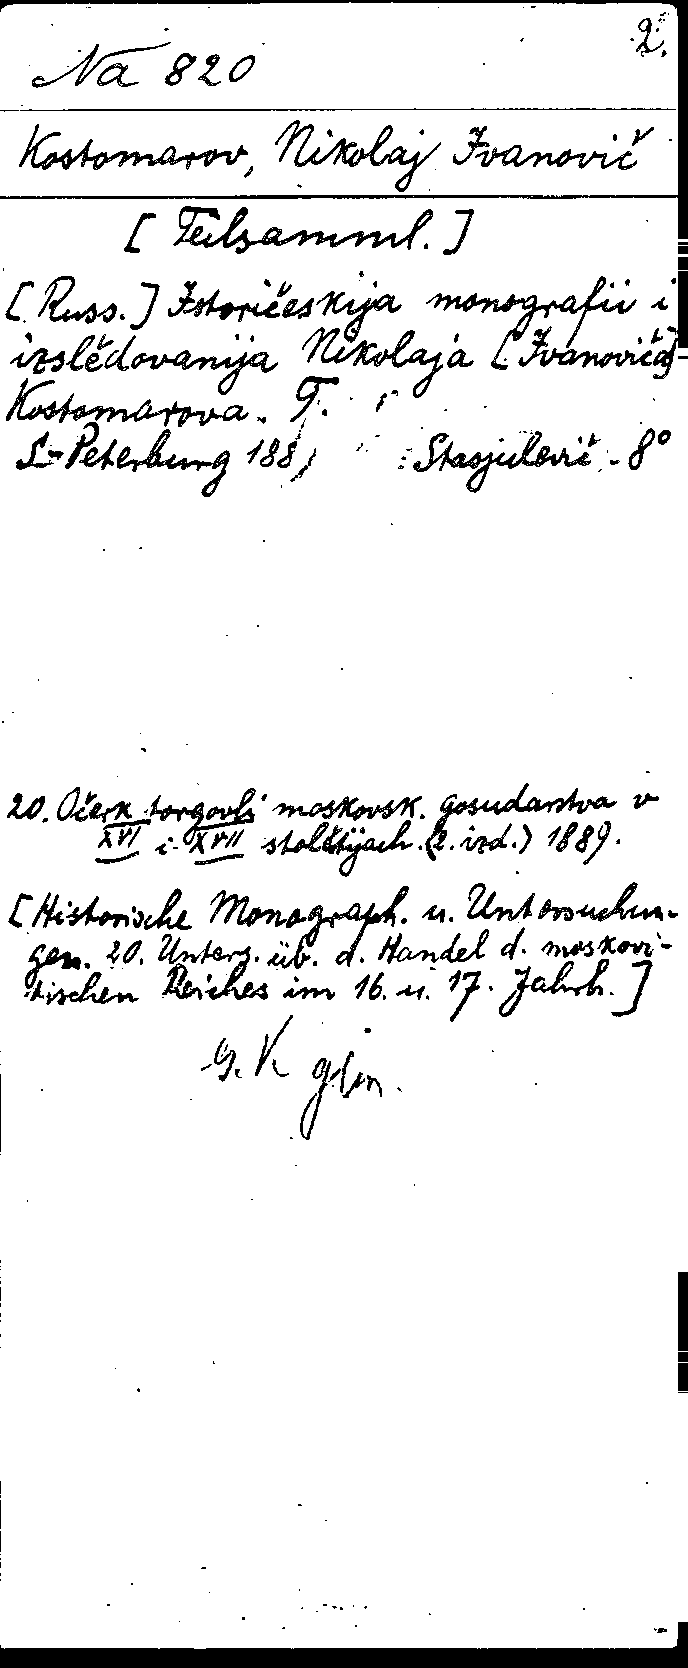 2.
Na 820
Kostomarov, Nikolaj Ivanovič
[Teilsamml.]
[Russ.] Istoričeskija monografii i
izslědovanija Nikolaja [Ivanoviča]
Kostomarova. T.
S.-Peterburg 188 : Stasjulevič. 8°
20. Očerk torgovli moskovsk. gosudarstva v
XVI i XVII stolětijach. (2. izd.) 1889.
[Historische Monograph. u. Untersuchun-
gen. 20. Unters. üb. d. Handel d. moskovi-
tischen Reiches im 16. u. 17. Jahrh.]
G. K